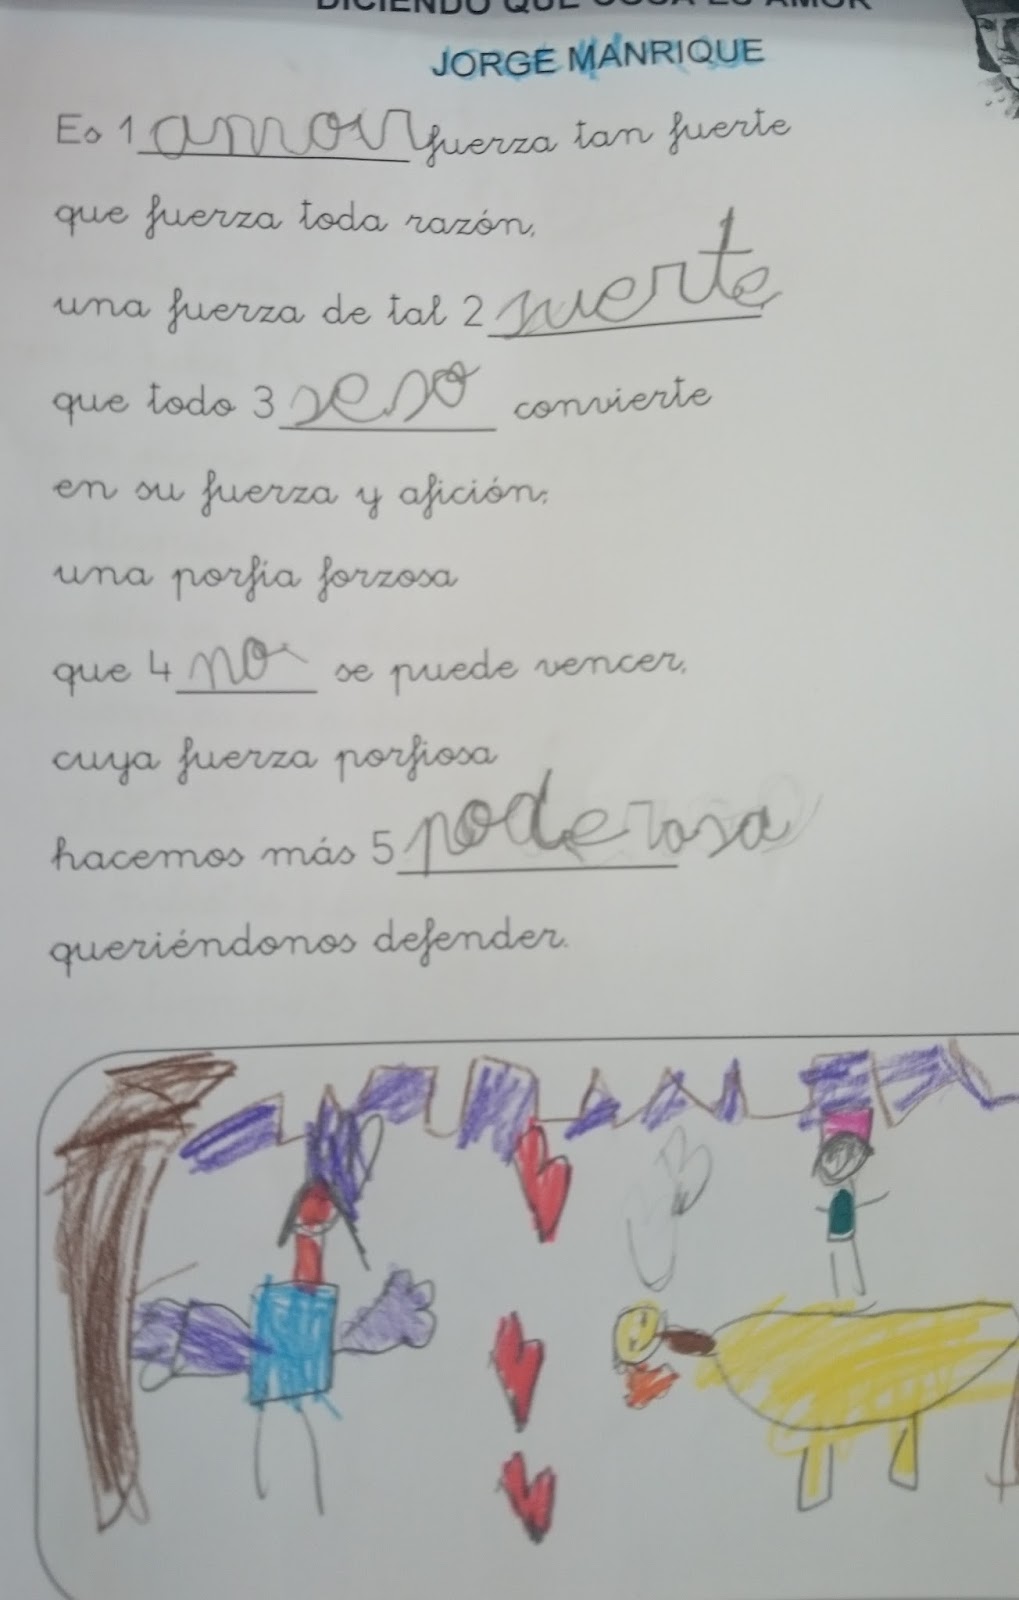 DICIENDO QUE COSA ES AMOR
JORGE MANRIQUE
Es 1 amor fuerza tan fuerte
que fuerza toda razón,
una fuerza de tal 2 suerte
que todo 3 seso convierte
en su fuerza y afición;
una porfía forzosa
que 4 no se puede vencer,
cuya fuerza porfiosa
hacemos más 5 poderosa
queriéndonos defender.